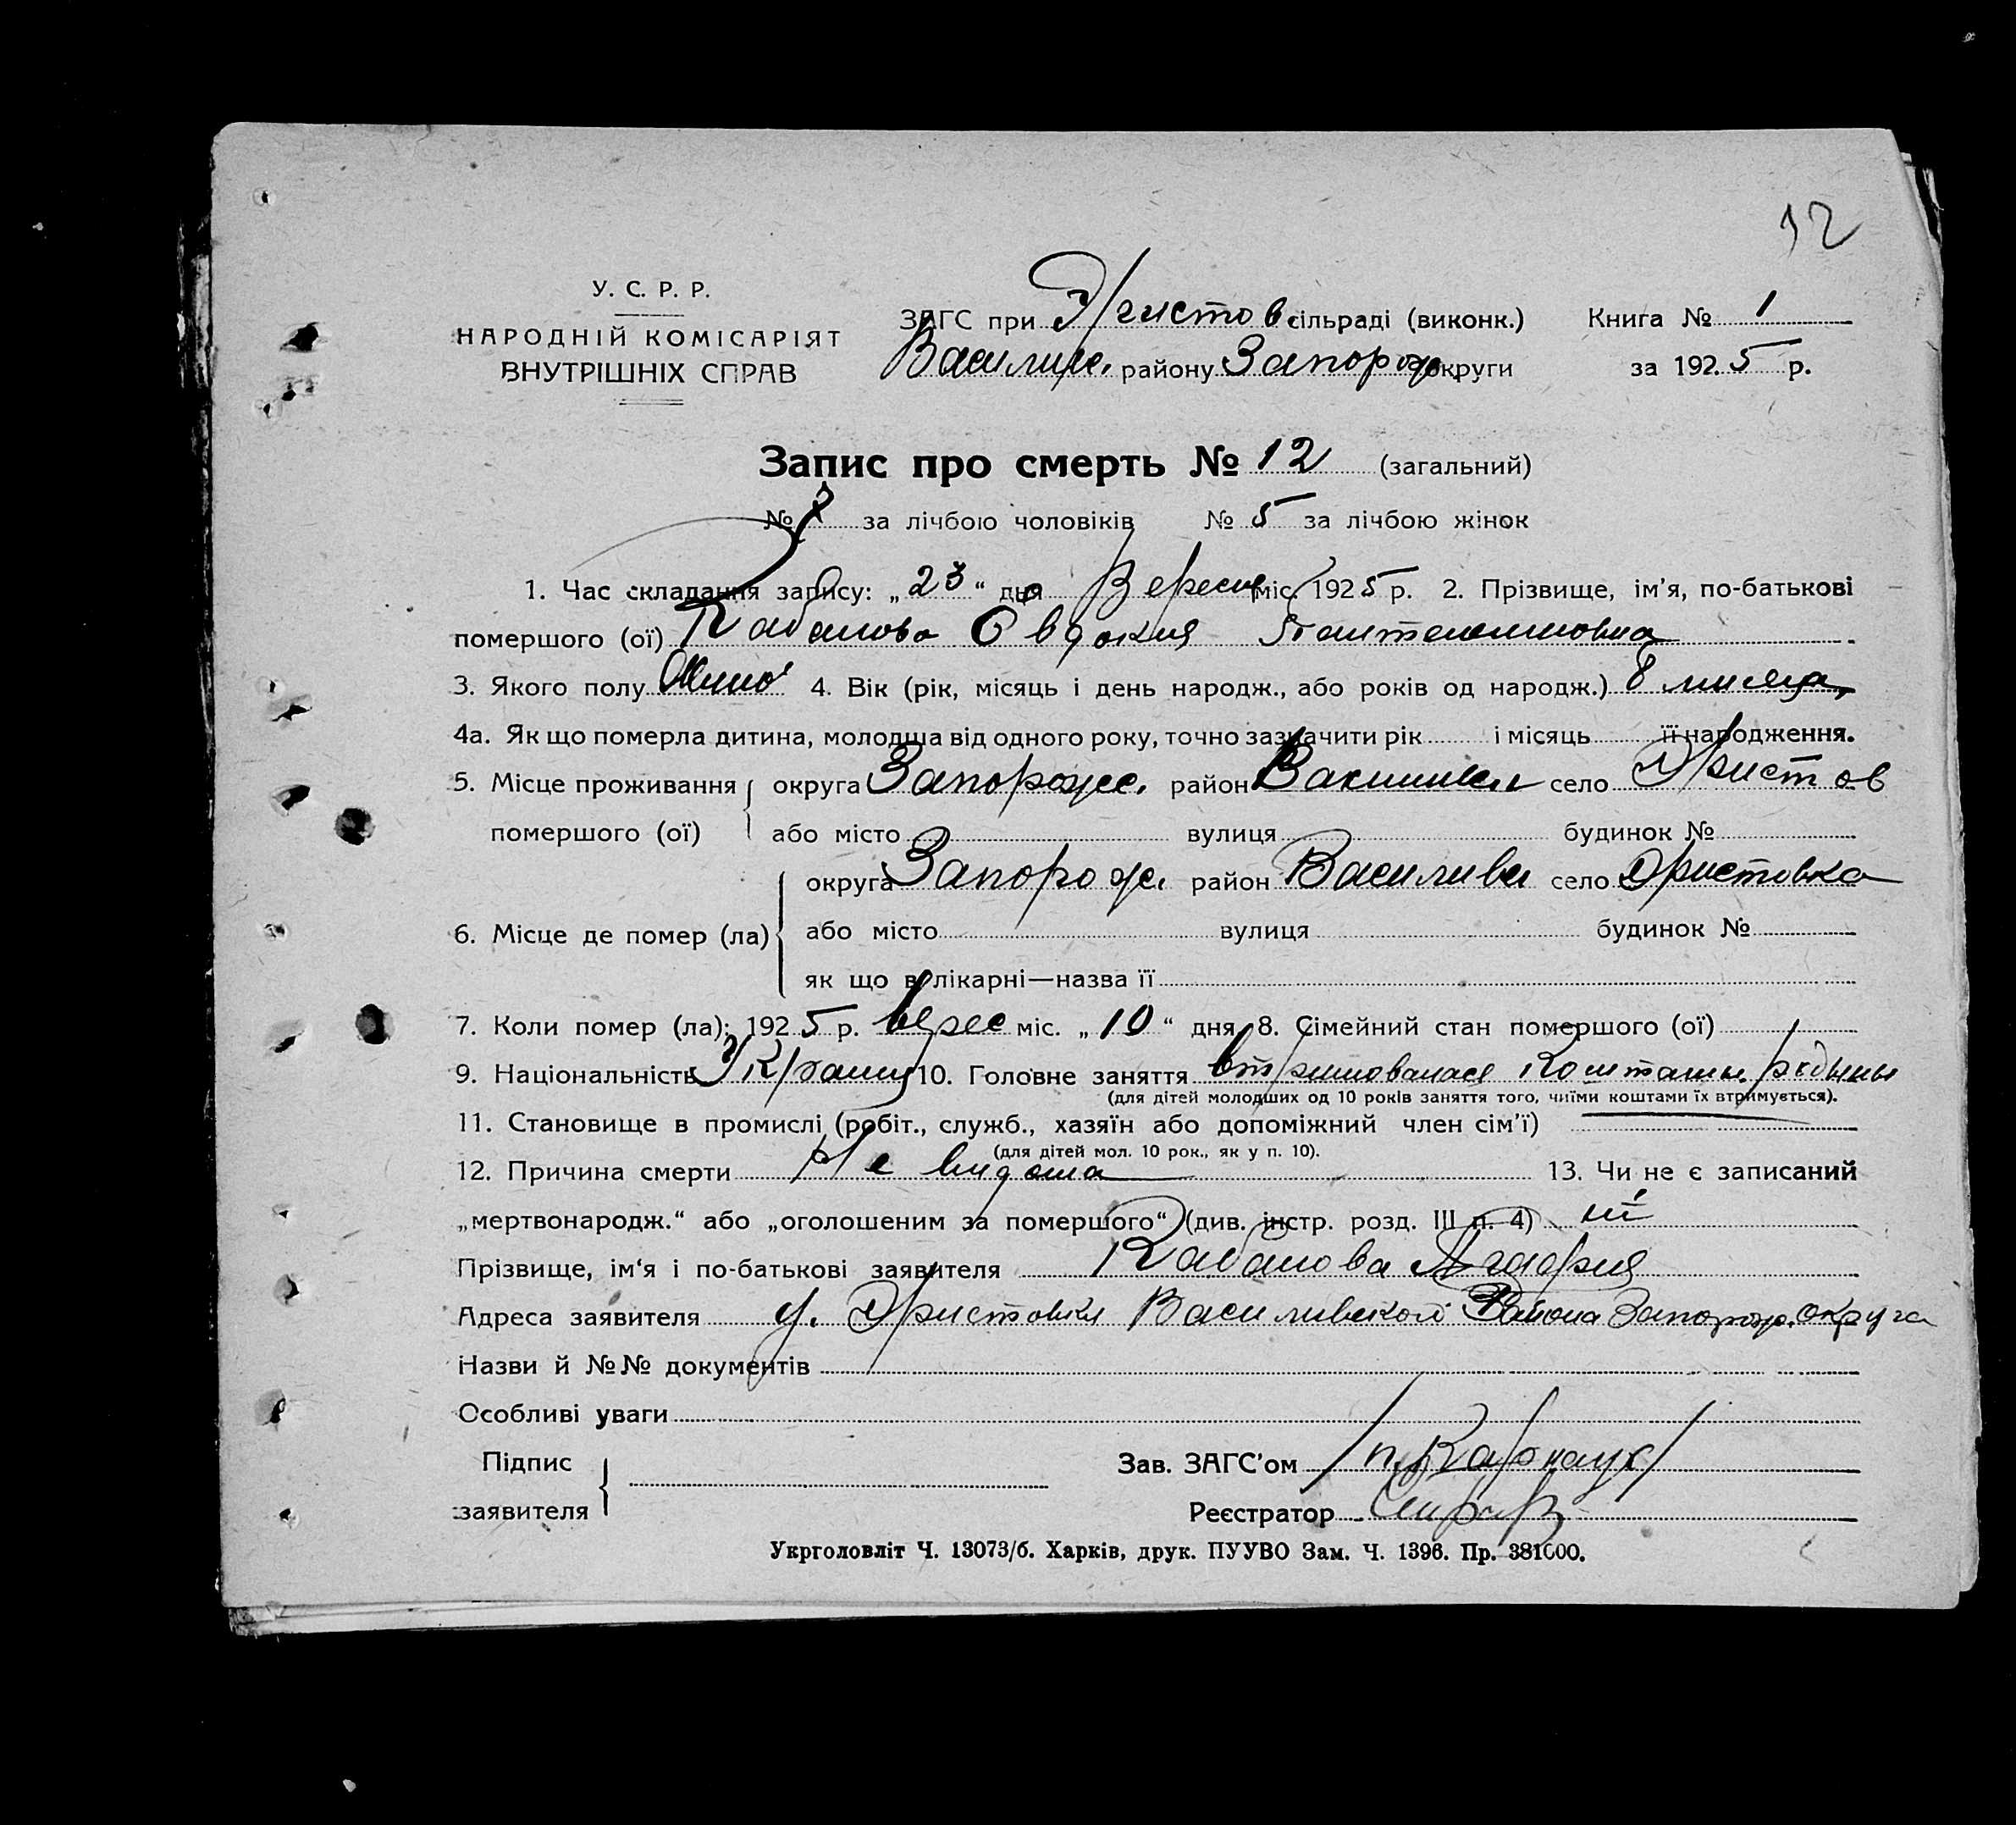 12
У. С. Р. Р.
НАРОДНІЙ КОМІСАРІЯТ
ВНУТРІШНІХ СПРАВ
ЗАГС при сільраді (виконк.) Книга № 1
району Запорож. округи за 1925 р.
Запис про смерть № 12 (загальний)
№ за лічбою чоловіків № 5 за лічбою жінок
1. Час складання запису: „23“ дня Вересня міс. 1925 р. 2. Прізвище, ім'я, по-батькові
помершого (ої) Кабанова Овдокия Пантелимоновна
3. Якого полу 4. Вік (рік, місяць і день народж., або років од народж.) 8
4а. Як що померла дитина, молодша від одного року, точно зазначити рік і місяць її народження.
5. Місце проживання округа Запорож. район село
помершого (ої) або місто вулиця будинок №
округа Запорож. район село
6. Місце де помер (ла) або місто вулиця будинок №
як що в лікарні—назва її
7. Коли помер (ла): 1925 р. верес міс. „10“ дня 8. Сімейний стан помершого (ої)
9. Національність 10. Головне заняття
(для дітей молодших од 10 років заняття того, чиїми коштами їх втримується).
11. Становище в промислі (робіт., служб., хазяїн або допоміжний член сім'ї)
(для дітей мол. 10 рок., як у п. 10).
12. Причина смерти Не видома 13. Чи не є записаний
„мертвонародж.“ або „оголошеним за помершого“ (див. інстр. розд. III п. 4) ні
Прізвище, ім'я і по-батькові заявителя Кабанова
Адреса заявителя с. Района Запорож. округа
Назви й №№ документів
Особливі уваги
Підпис
заявителя
Зав. ЗАГС'ом
Реєстратор
Укрголовліт Ч. 13073/б. Харків, друк. ПУУВО Зам. Ч. 1396. Пр. 381000.